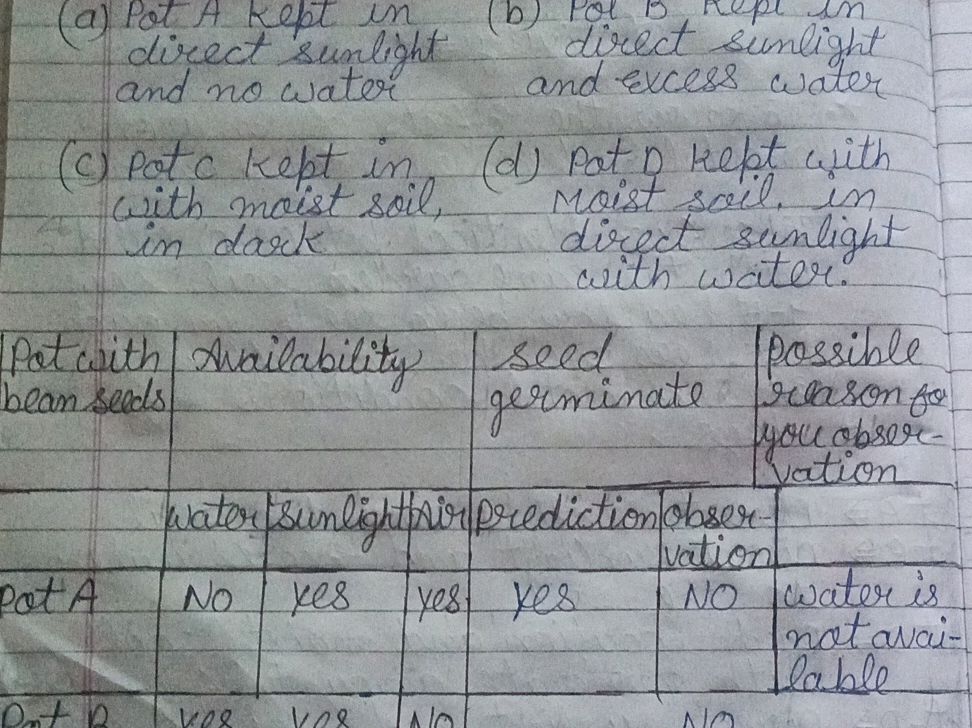 (a) Pot A kept in
direct sunlight
and no water
(b) Pot B kept in
direct sunlight
and excess water
(c) Pot C kept in
with moist soil,
in dark
(d) Pot D kept with
Moist soil. in
direct sunlight
with water.
Pot with bean seeds | Availability | seed germinate | possible reason for you obser-vation
Water | Sunlight | Air | prediction | obser-vation
Pot A | NO | yes | yes | yes | NO | water is not avai-lable
Pot B | yes | yes | NO | NO